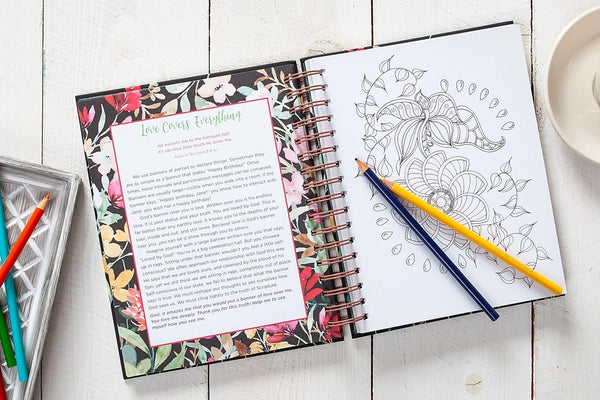 Love Covers Everything
He escorts me to the banquet hall,
it's obvious how much he loves me.
Song of Solomon 2:4 NLT
We use banners at parties to declare things. Sometimes they
are as simple as a banner that states "Happy Birthday!" Other
times, more intimate and personalized messages can be conveyed.
Banners are usually larger-visible when you walk into a room. If a
banner says, "Happy birthday, Jane!" you know how to interact with
Jane; you wish her a happy birthday!
God's banner over you is love. Written over you is his endless
love. It is your status and your truth. You are loved by God. This is
truer than any earthly love. It knows you to the depths of your
soul inside and out, and still loves. Because love is God's banner
over you, you can let it shine through you to others.
Imagine yourself with a large banner written over you that says,
"Loved by God!" You're in a big celebration hall. But you showed
up in rags. Sitting under that banner, wouldn't you feel a little self-
conscious? We often approach our relationship with God this way.
He says that we are loved, pure, and redeemed by the blood of his
Son, yet we still think we are sitting in rags, completely out of place.
Self-conscious in our state, we fail to believe that what the banner
says is true. We must reshape our thoughts to see ourselves how
God sees us. We must cling tightly to the truth of Scripture.
God, it amazes me that you would put a banner of love over me.
You love me deeply. Thank you for this truth! Help me to see
myself how you see me.